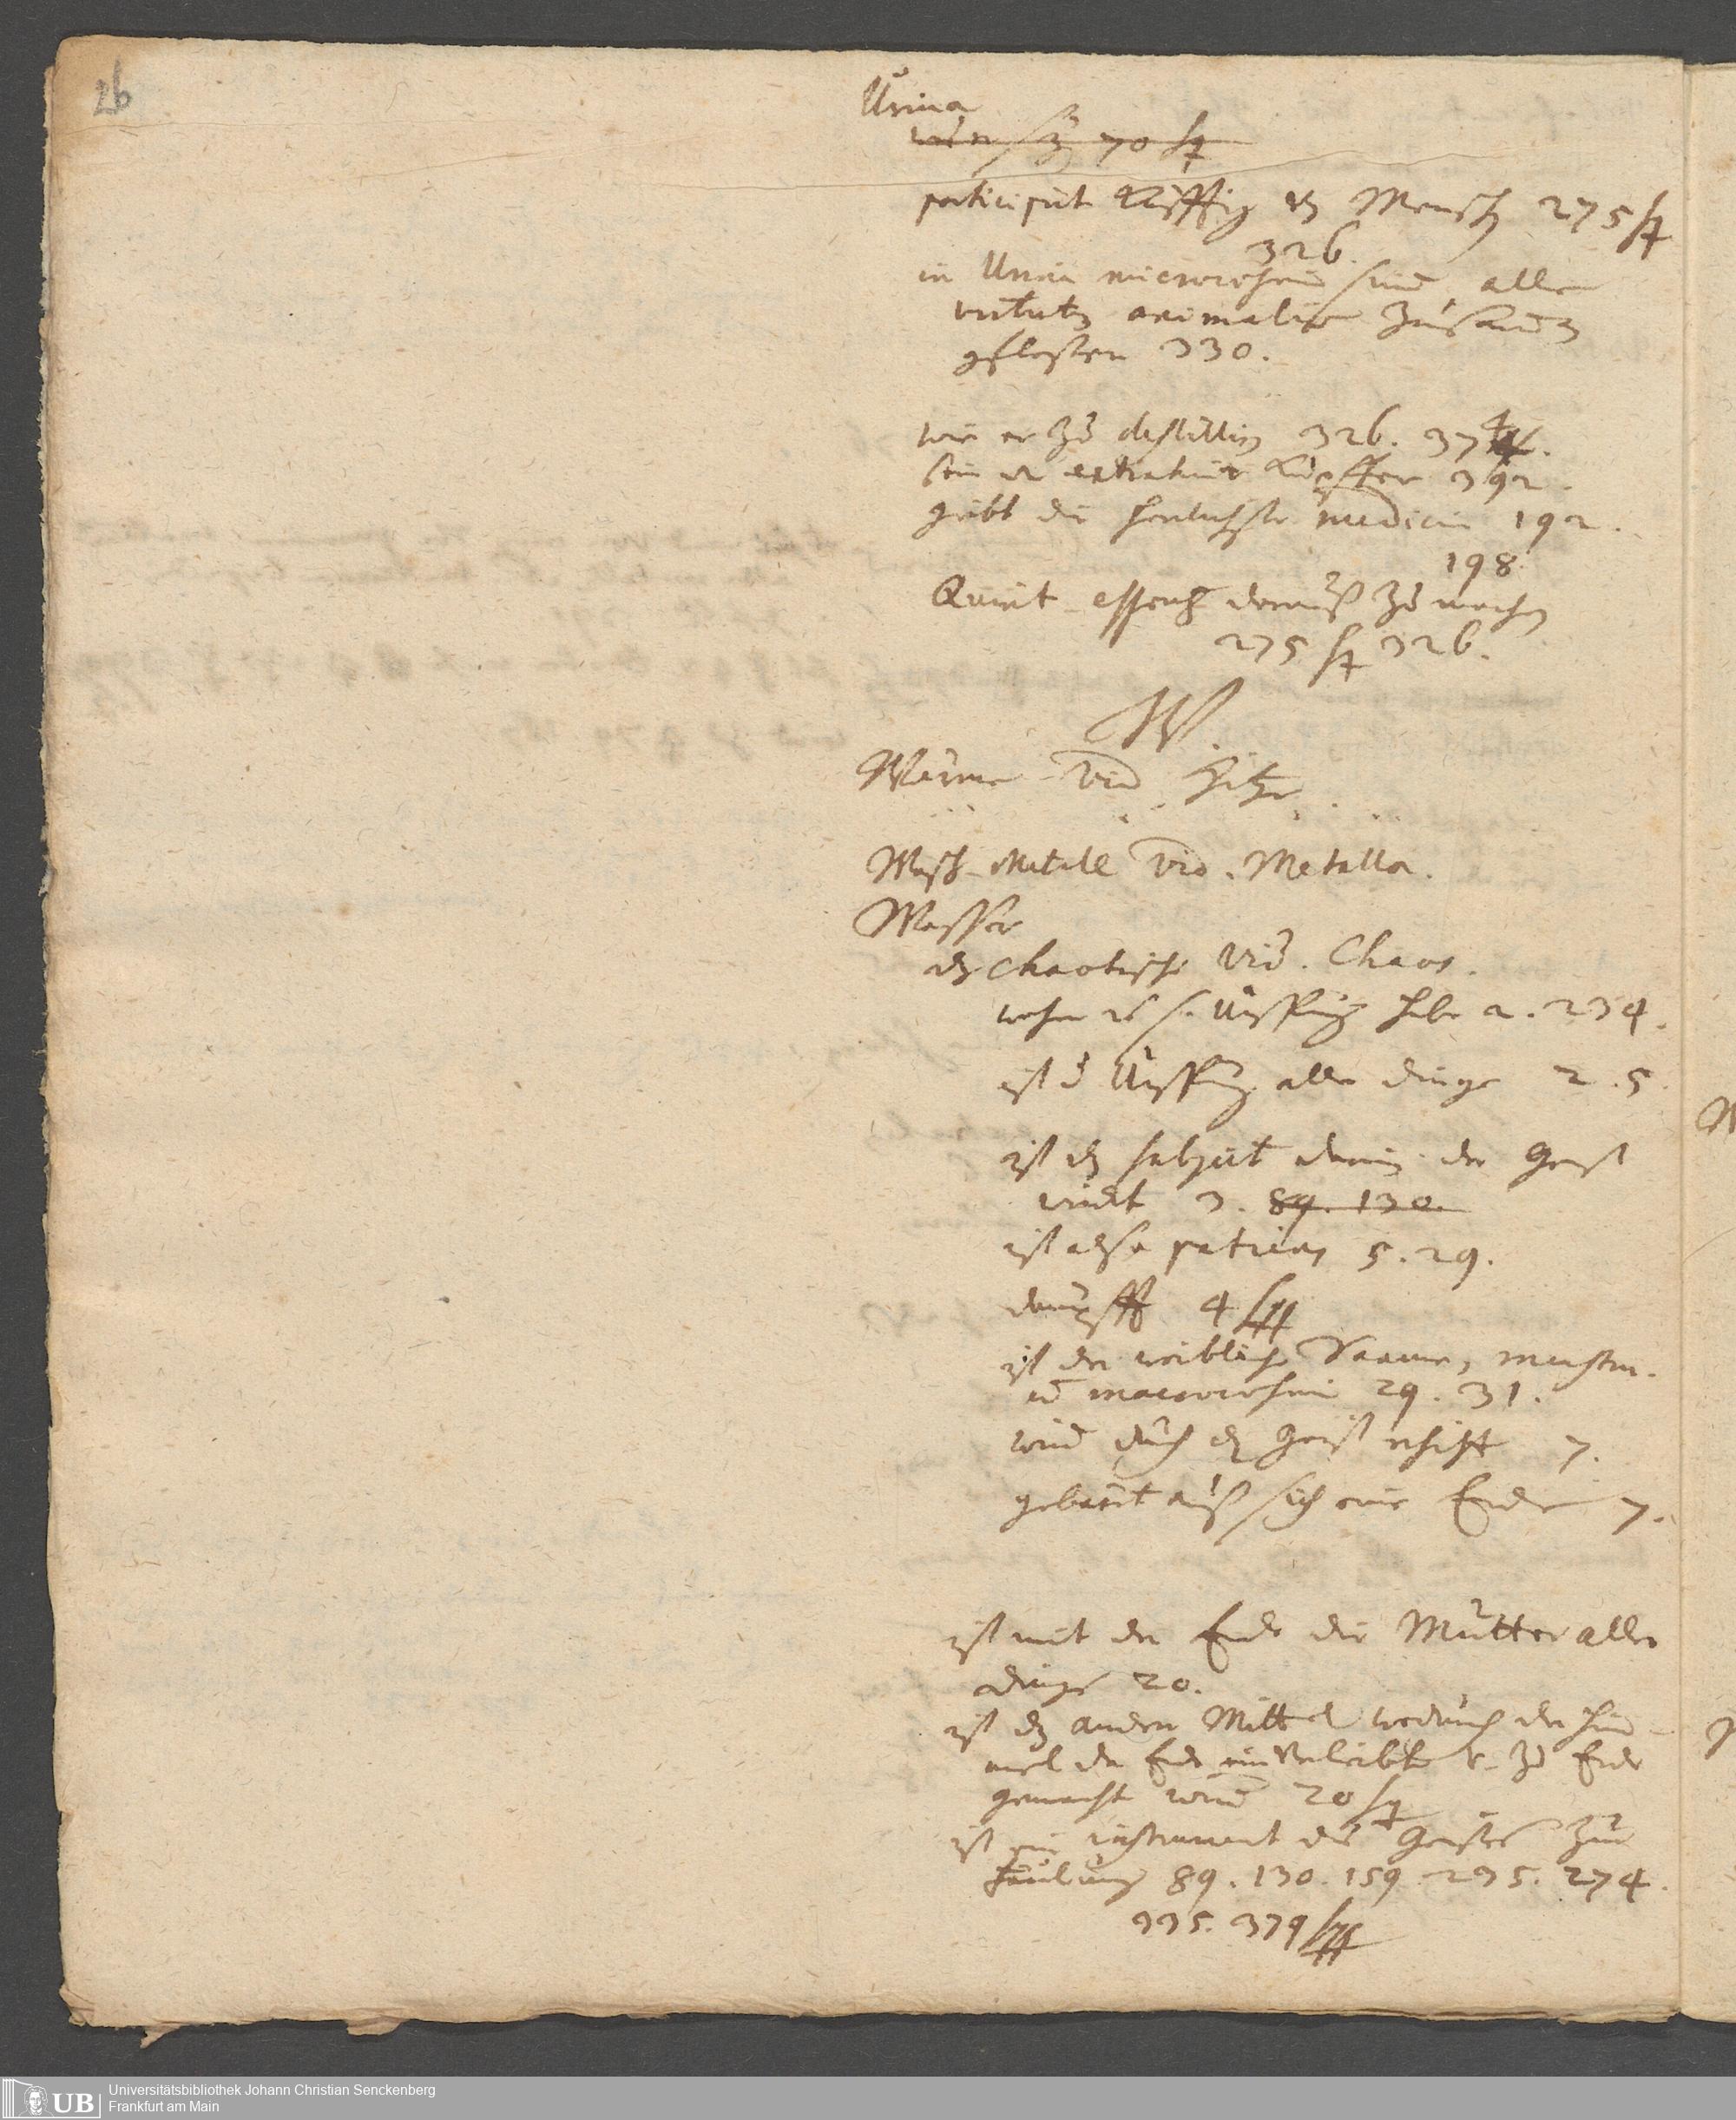 26
Urina
70 f
participirt kräfftig des Mensch 275 f
326.
in Urina microcosmi sind alle
virtutes animalis zusammen
gflossen 330.
wie er zu destillirn 326. 374.
sein extrahirt Kupffer 392.
gibt die herrlichste medicin 192.
198.
Quint essentz daraus zu machen
275 f 326.
W.
Wärme vid. Hitze.
Metall vid. Metalla.
Wasser
das chaotische vid. Chaos.
woher es s. Ursprung habe 2. 234.
ist d Ursprung aller dinge 2. 5
ist das subject darin der Geist
wirckt 3. 89. 130.
ist also patiens 5. 29.
dampff 4 ff
ist der weibliche Saame, menstru.
macrocosmi 29. 31.
wird durch den Geist erhitzt 7.
gebürt auß sich eine Erde 7.
ist mit der Erde die Mutter aller
dinge 20.
ist das ander Mittel wodurch der him¬
mel der Erde einverleibt v. zu Erde
gemacht wird 20 f
ist ein instrument des Geistes zur
faulung 89. 130. 159. 235. 274.
335. 379 ff
UB
Universitätsbibliothek Johann Christian Senckenberg
Frankfurt am Main